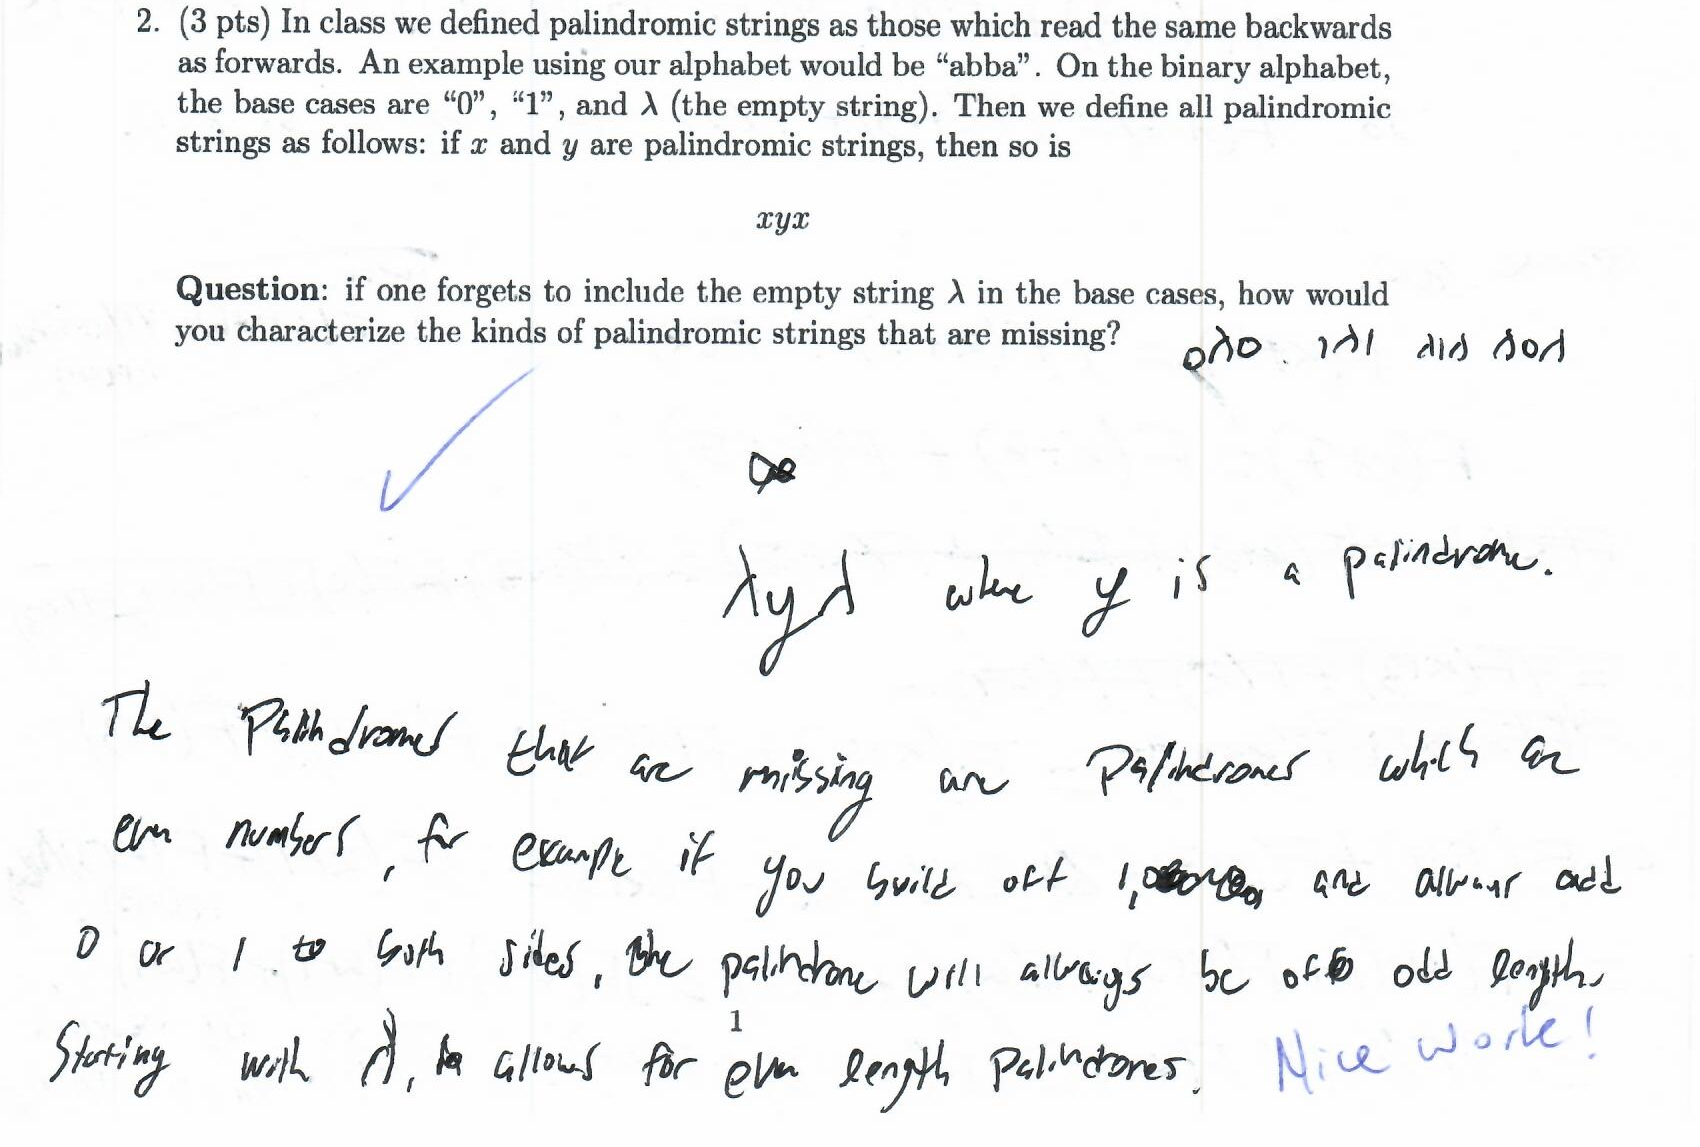 2. (3 pts) In class we defined palindromic strings as those which read the same backwards
as forwards. An example using our alphabet would be “abba”. On the binary alphabet,
the base cases are “0”, “1”, and λ (the empty string). Then we define all palindromic
strings as follows: if x and y are palindromic strings, then so is
xyx
Question: if one forgets to include the empty string λ in the base cases, how would
you characterize the kinds of palindromic strings that are missing?
0λ0. 1λ1 λ1λ λ0λ
λyλ where y is a palindrome.
The Palindromes that are missing are Palindromes which are
even numbers, for example if you build off 1, and always add
0 or 1 to both sides, the palindrome will always be of odd length.
1
Starting with λ, allows for even length Palindromes. Nice work!